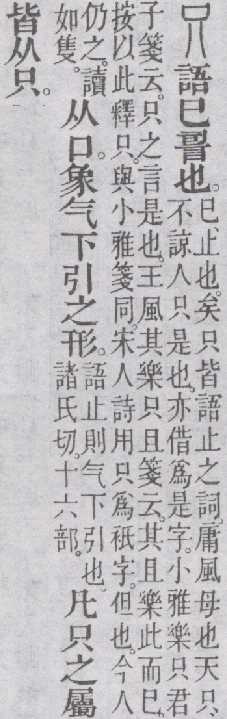 只語巳䛐也。
巳、止也。矣只皆語止之詞。庸風母也天只、
不諒人只是也。亦借爲是字。小雅樂只君
子箋云。只之言是也。王風其樂只且箋云。其且樂此而巳。
按以此釋只。與小雅箋同。宋人詩用只爲祇字。但也。今人
仍之。讀
如隻。
从口。象气下引之形。
語止則气下引也。
諸氏切。十六部。
凡只之屬
皆从只。